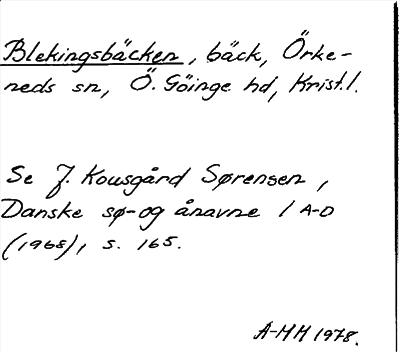 Blekingsbäcken, bäck, Örke-
neds sn, Ö. Göinge hd, Krist.l.
Se J. Kousgård Sørensen,
Danske sø- og ånavne 1 A-D
(1968), s. 165.
A-MH 1978.